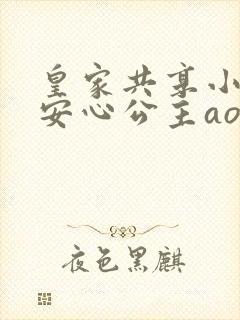 皇家共享小
安心公主ao
夜色黑麒